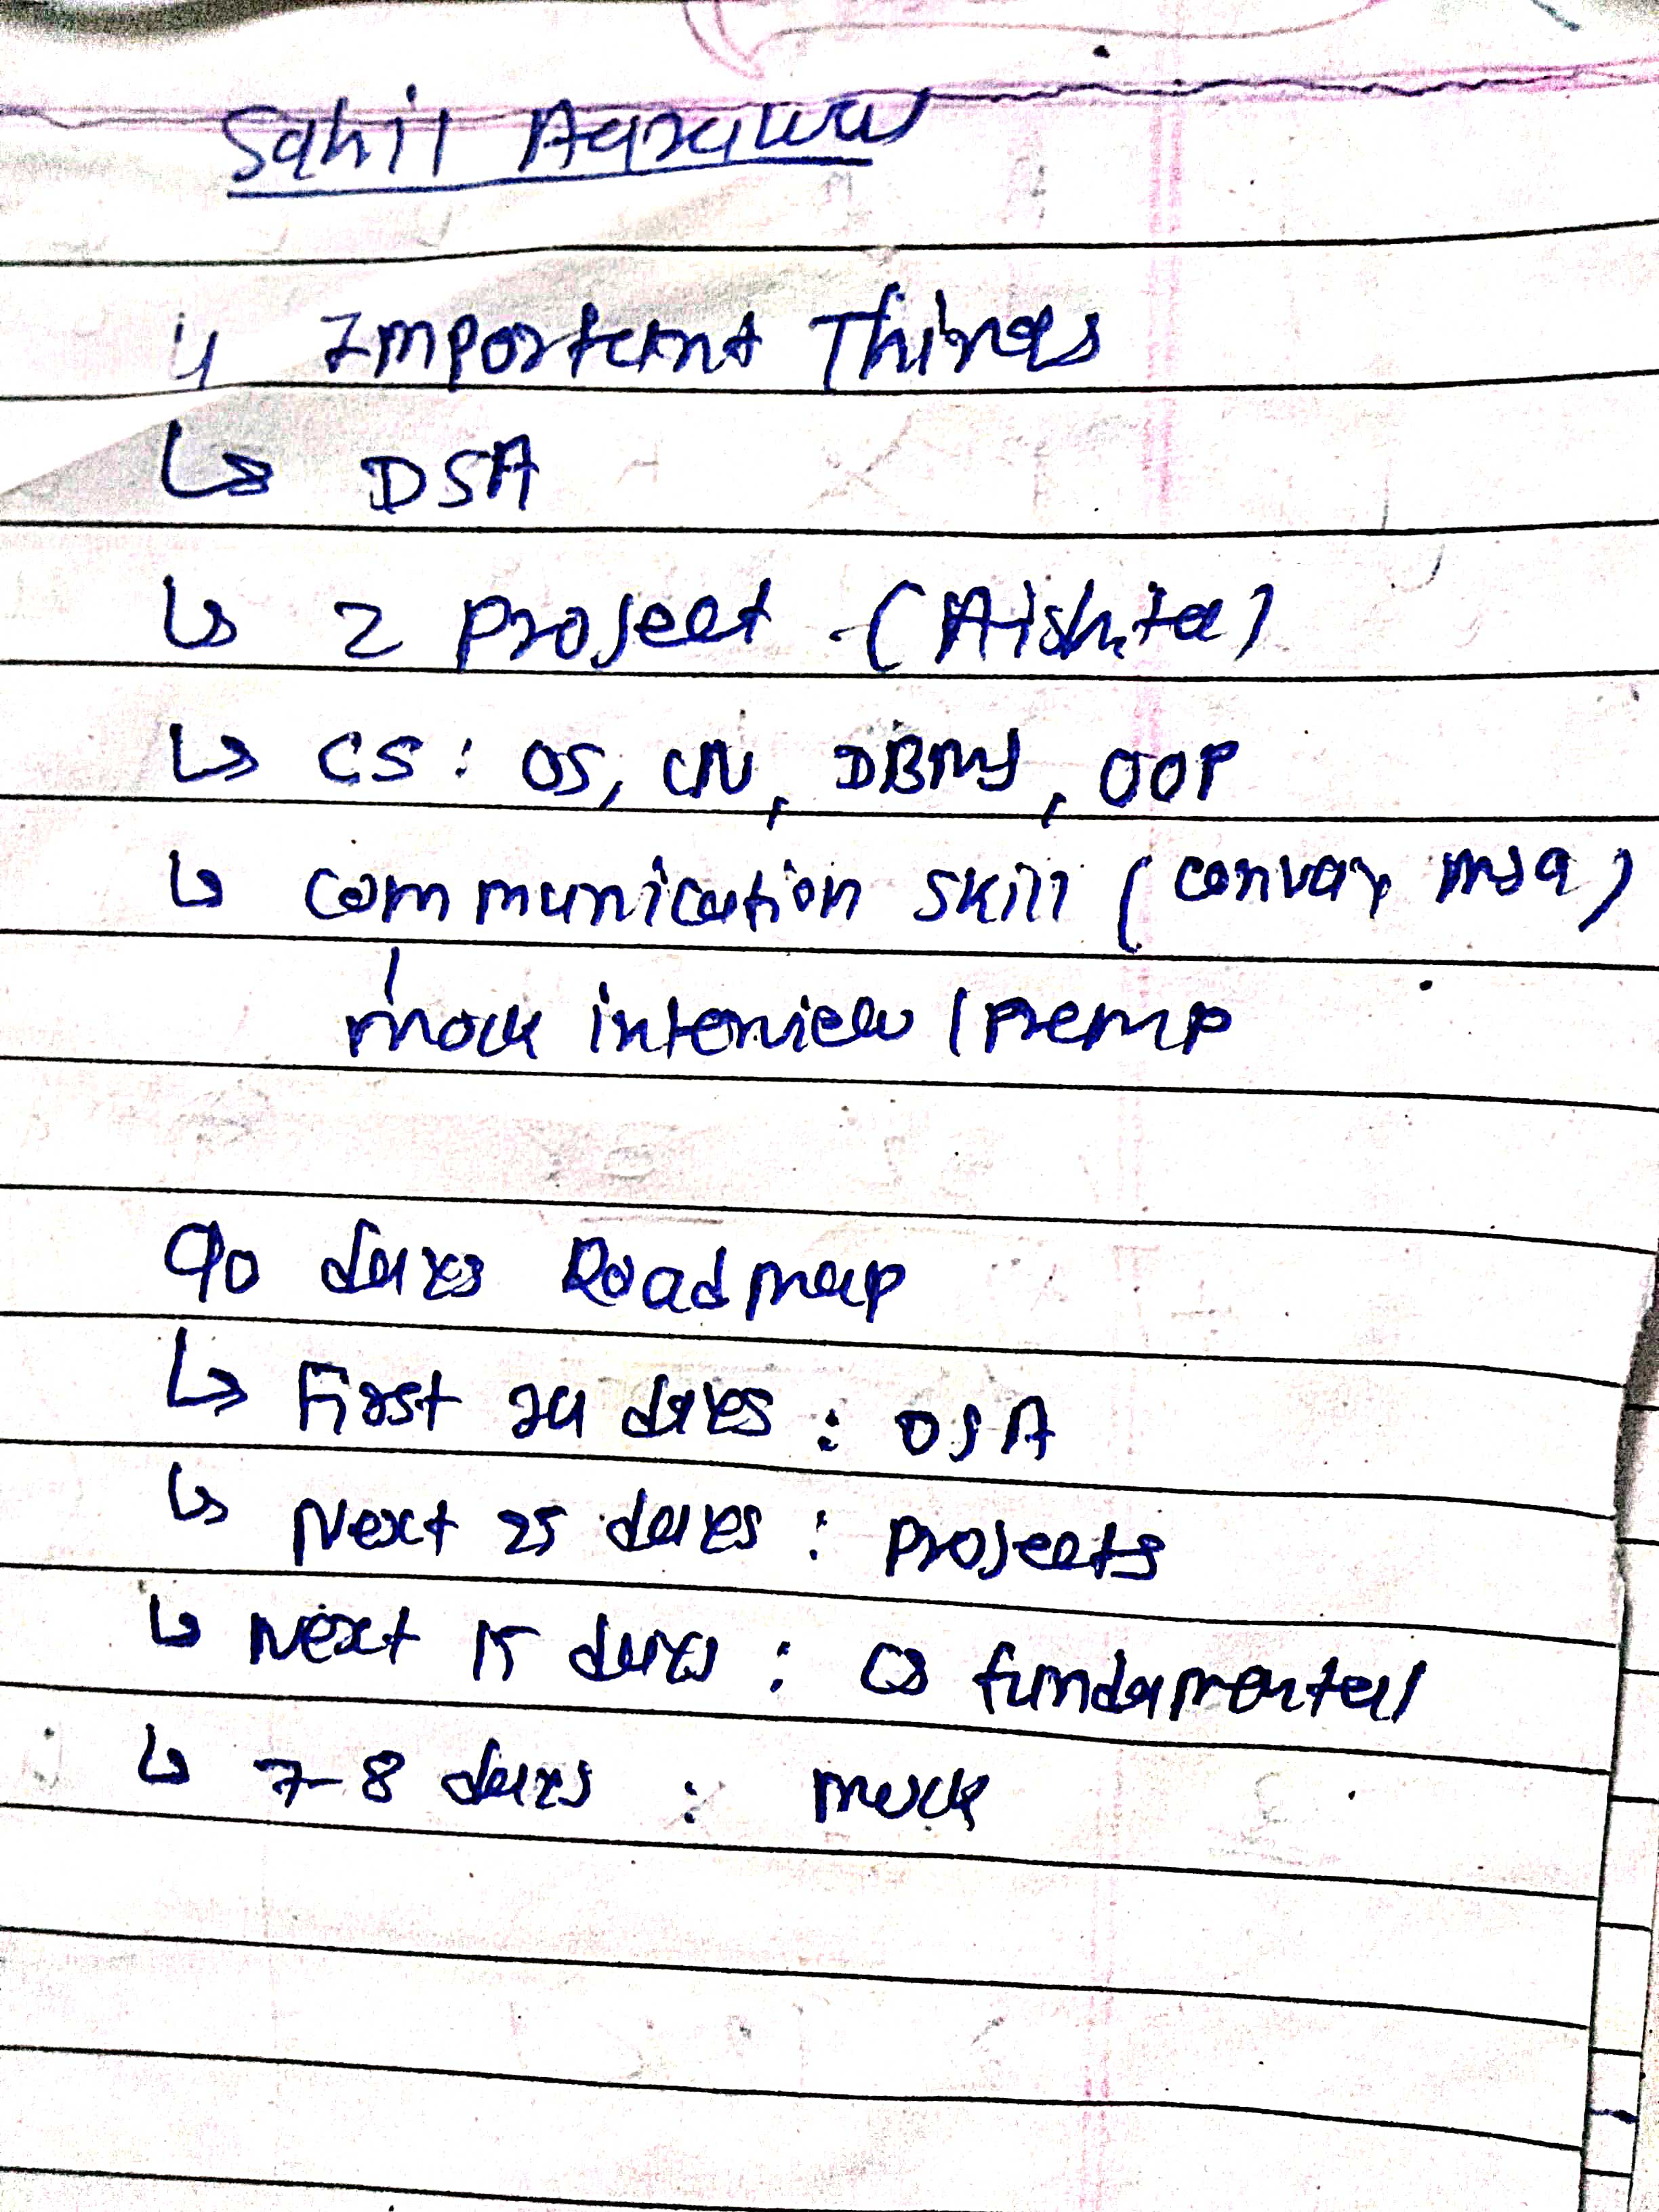 Sahil Agrawal
4 Important Things
↳ DSA
↳ 2 Project (Aishita)
↳ CS: OS, CN, DBMS, OOP
↳ Communication skill (convay msg)
mock interview /
90 days Roadmap
↳ First 24 days : DSA
↳ Next 25 days : Projects
↳ Next 15 days : CS fundamental
↳ 7-8 days : mock